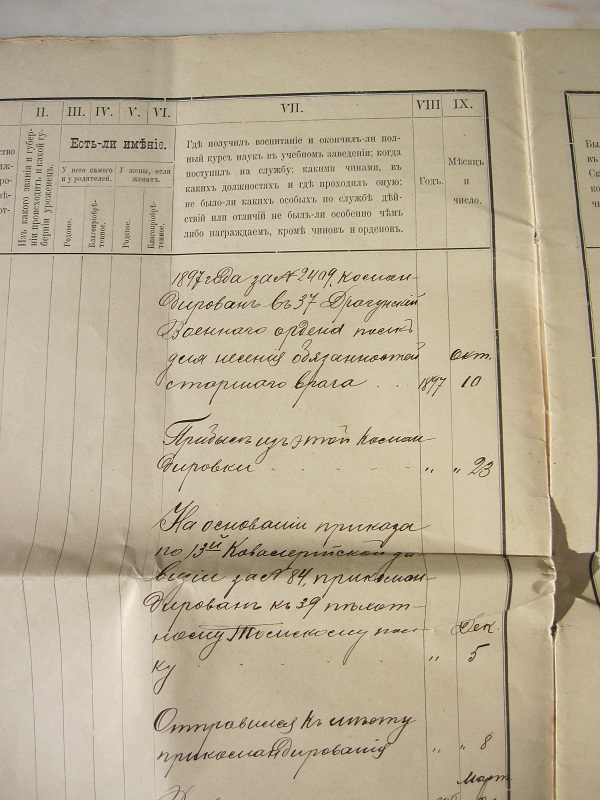 II.
III.
IV.
V.
VI.
VII.
VIII
IX.
ство
Изъ какого званія и губер-
ніи происходитъ и какой гу-
берніи уроженецъ.
Есть-ли имѣніе.
У него самого
и у родителей.
У жены, если
женатъ.
Родовое.
Благопріобрѣ-
тенное.
Родовое.
Благопріобрѣ-
тенное.
Гдѣ получилъ воспитаніе и окончилъ-ли пол-
ный курсъ наукъ въ учебномъ заведеніи; когда
поступилъ на службу; какими чинами, въ
какихъ должностяхъ и гдѣ проходилъ оную;
не было-ли какихъ особыхъ по службѣ дѣй-
ствій или отличій не былъ-ли особенно чѣмъ
либо награждаемъ, кромѣ чиновъ и орденовъ.
Годъ.
Мѣсяцъ
и
число.
1897 года за № 2409, коман-
дированъ въ 37 Драгунскій
Военнаго ордена полкъ
для несенія обязанностей
Окт.
старшаго врача . . . 1897 10
Прибылъ изъ этой коман-
дировки . . . . „ „ 23
На основаніи приказа
по 13й Кавалерійской ди-
визіи за № 84, прикоман-
дированъ къ 39 пѣхот-
ному Томскому пол-
Дек.
ку . . . . „ 5
Отправился къ мѣсту
прикомандированія „ „ 8
Март.